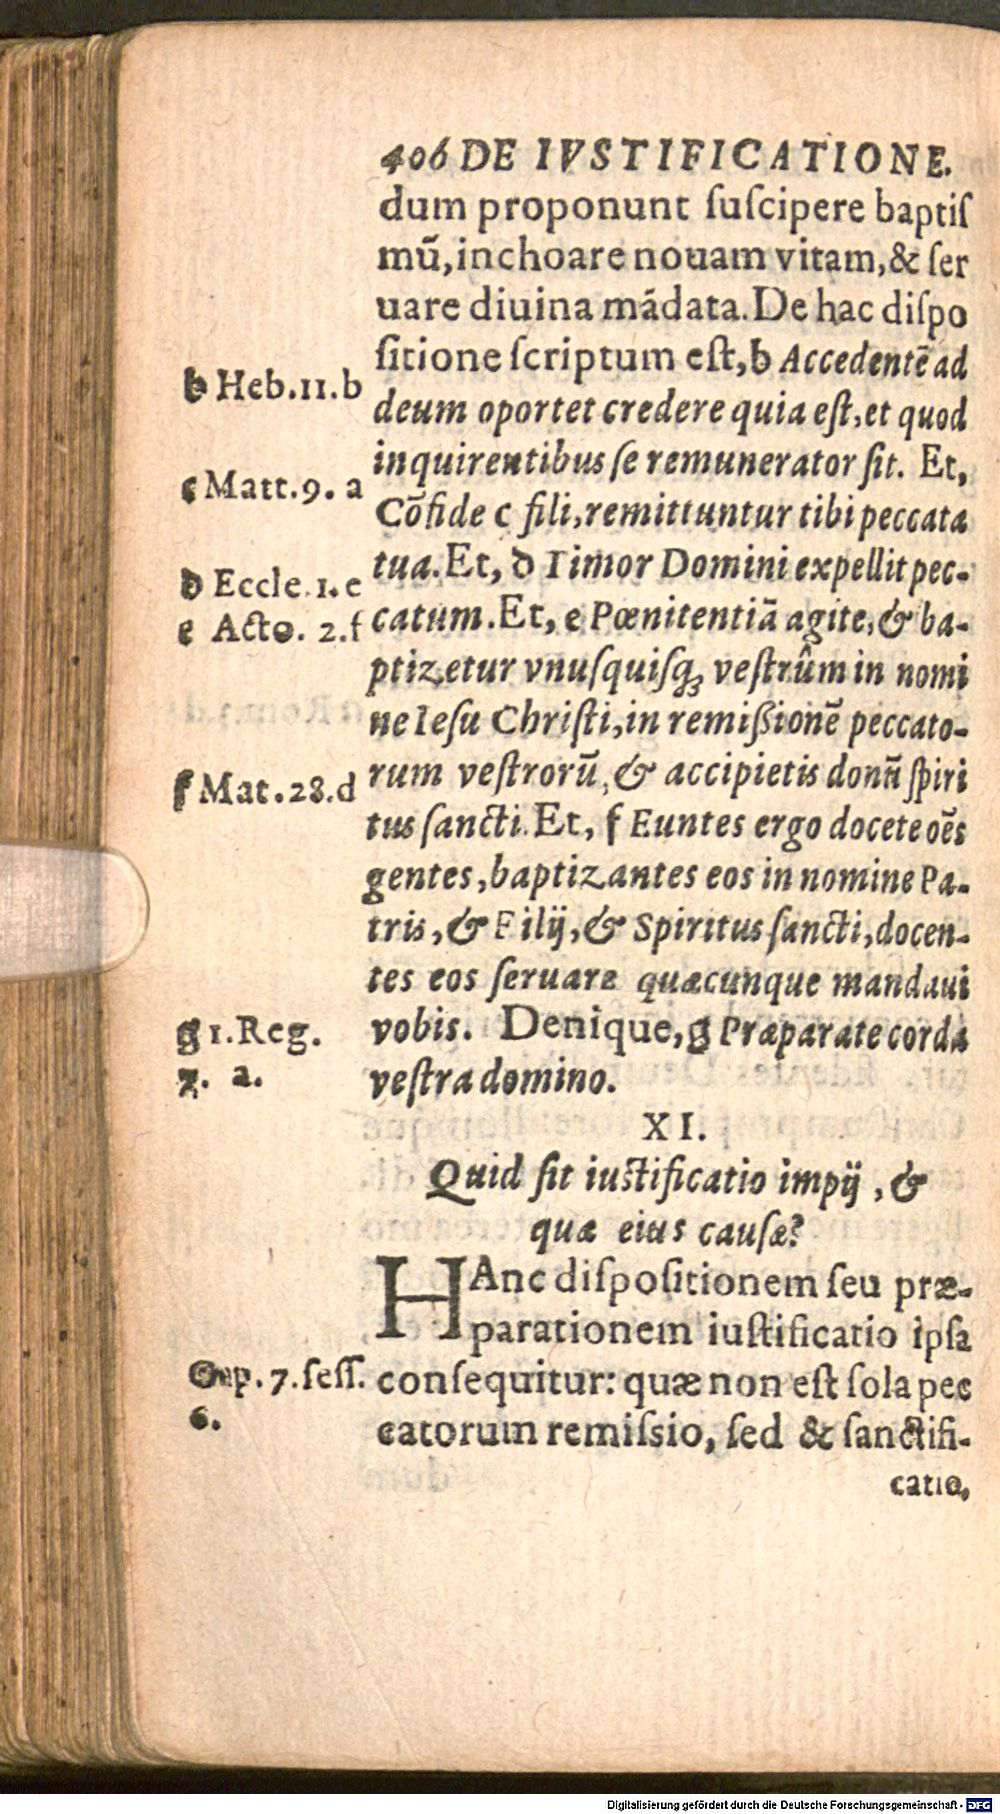 406 DE IVSTIFICATIONE.
dum proponunt ſuſcipere baptiſ
mũ, inchoare nouam vitam, & ſer
uare diuina mãdata. De hac diſpo
ſitione ſcriptum eſt, b Accedentẽ ad
b Heb.11.b
deum oportet credere quia eſt, et quod
inquirentibus ſe remunerator ſit. Et,
c Matt.9. a
Cõfide c fili, remittuntur tibi peccata
tua. Et, d Timor Domini expellit pec-
d Eccle. 1. e
catum. Et, e Pœnitentiã agite, & ba-
e Acto. 2.f
ptizetur vnuſquiſq; veſtrûm in nomi
ne Ieſu Chriſti, in remiſsionẽ peccato-
rum veſtrorũ, & accipietis donũ ſpiri
f Mat.28.d
tus ſancti. Et, f Euntes ergo docete oẽs
gentes, baptizantes eos in nomine Pa-
tris, & Filij, & Spiritus ſancti, docen-
tes eos ſeruare quæcunque mandaui
vobis. Denique, g Præparate corda
g 1.Reg.
7. a.
veſtra domino.
XI.
Quid ſit iuſtificatio impij, &
quæ eius cauſæ?
HAnc diſpoſitionem ſeu præ-
parationem iuſtificatio ipſa
Cap.7.ſeſſ.
6.
conſequitur: quæ non eſt ſola pec
catorum remiſsio, ſed & ſanctifi-
catio,
Digitalisierung gefördert durch die Deutsche Forschungsgemeinschaft - DFG